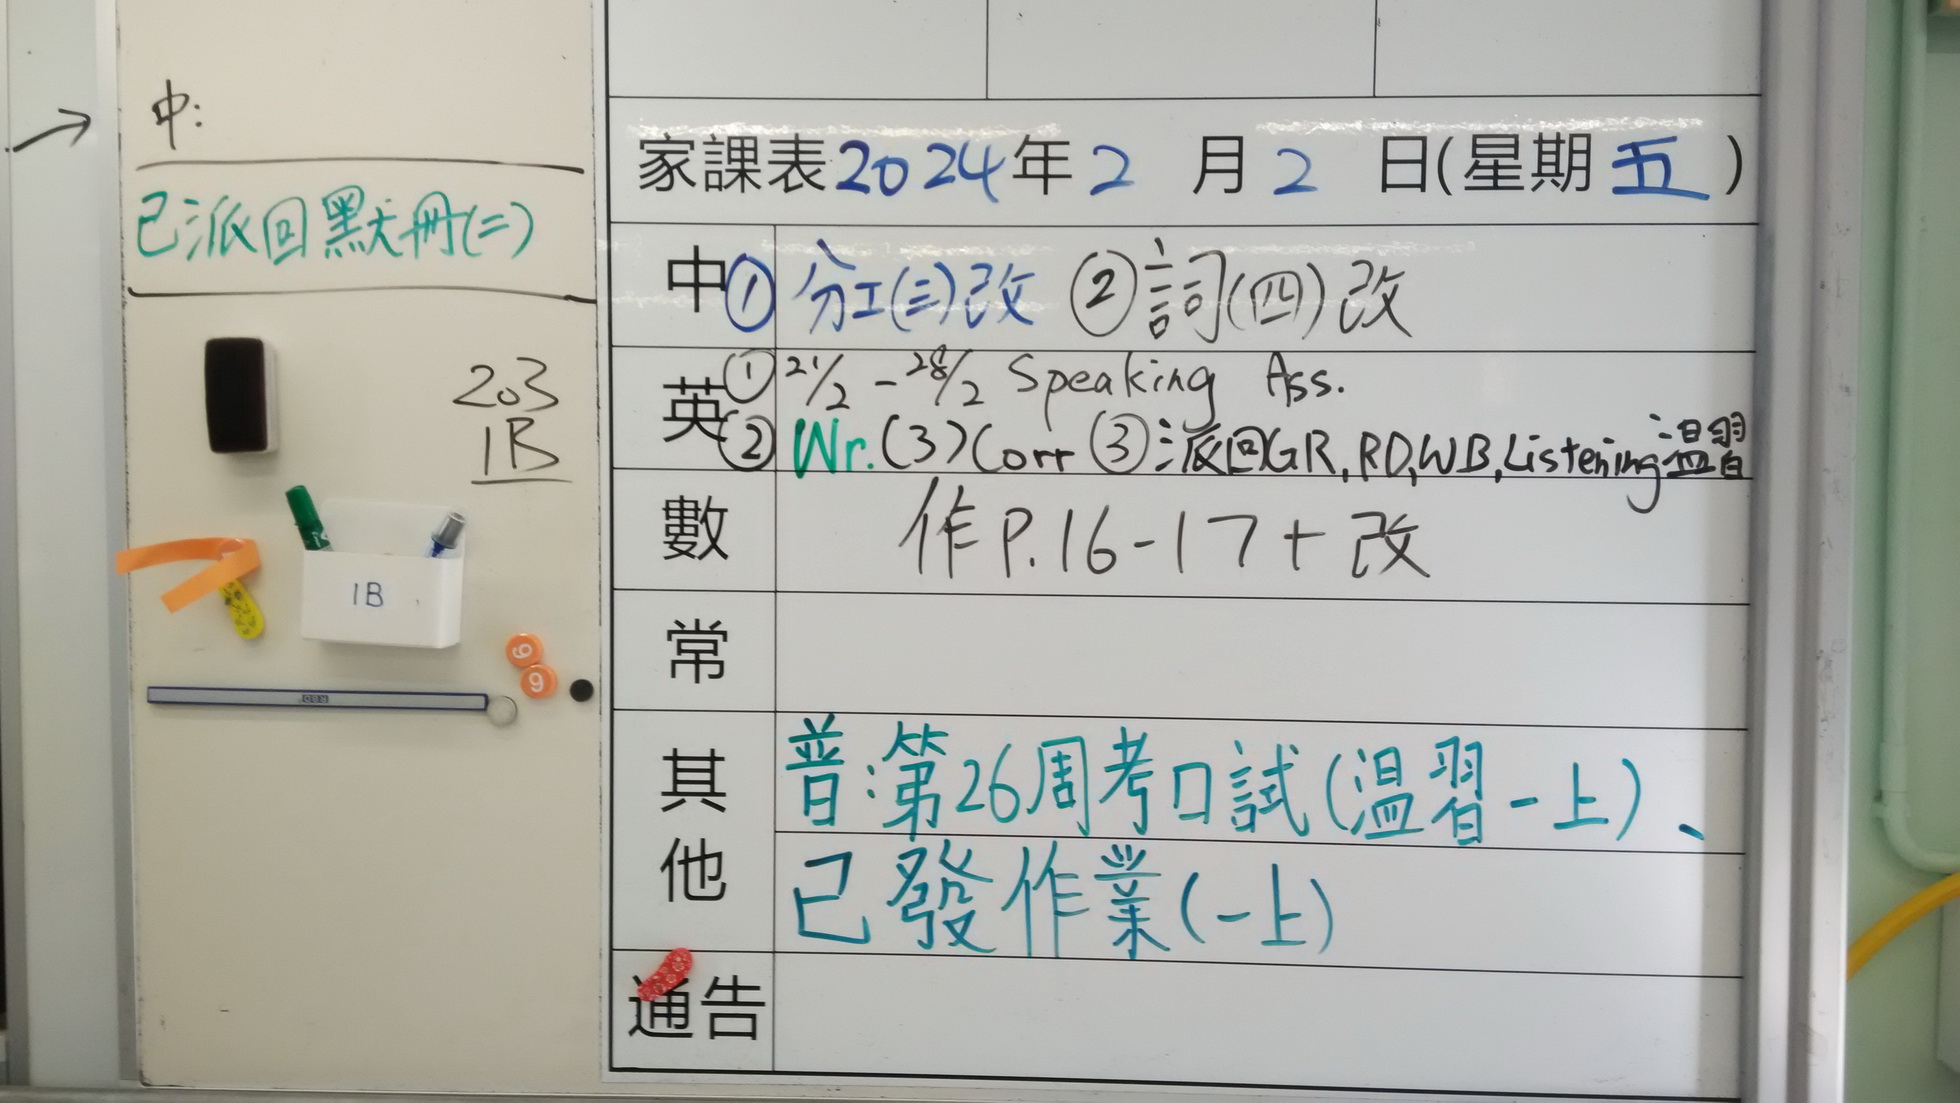 中:
已派回默冊(二)
203
1B
1B
9
9
家課表2024年2月2日(星期五)
中 ① 分工(三)改 ② 詞(四)改
英 ① 21/2 - 28/2 Speaking Ass.
② Wr.(3)Corr ③ 派回GR, RD, WB, Listening溫習
數 作P.16-17+改
常
其他 普:第26周考口試(溫習一上)、
已發作業(一上)
通告